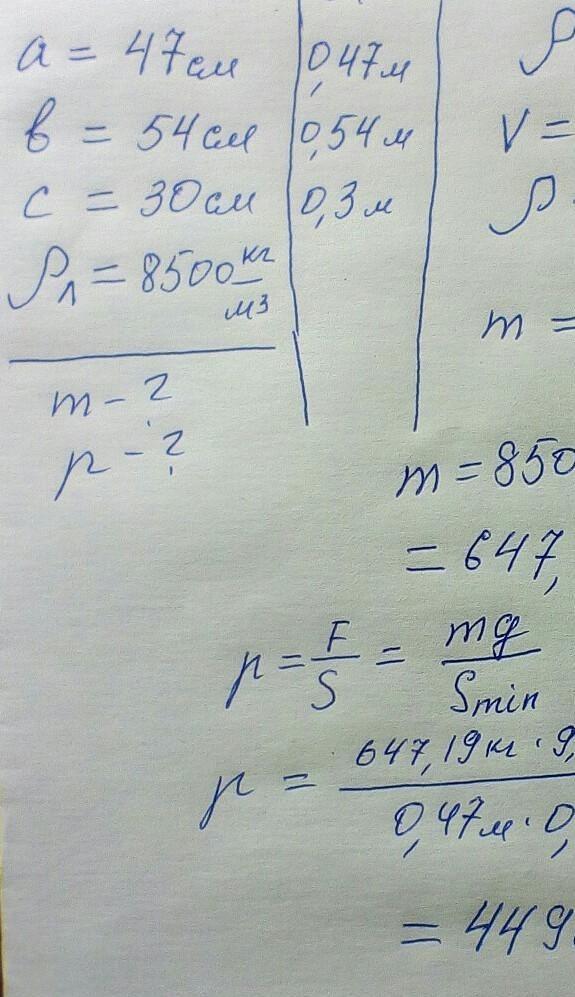 a = 47см 0,47м ρ
в = 54см 0,54м V =
c = 30см 0,3м ρ
ρ₁ = 8500 кг/м3
m =
m - ?
p - ?
m = 850
= 647,
p = F/S = mg/Smin
p = 647,19кг · 9,
0,47м · 0,
= 449